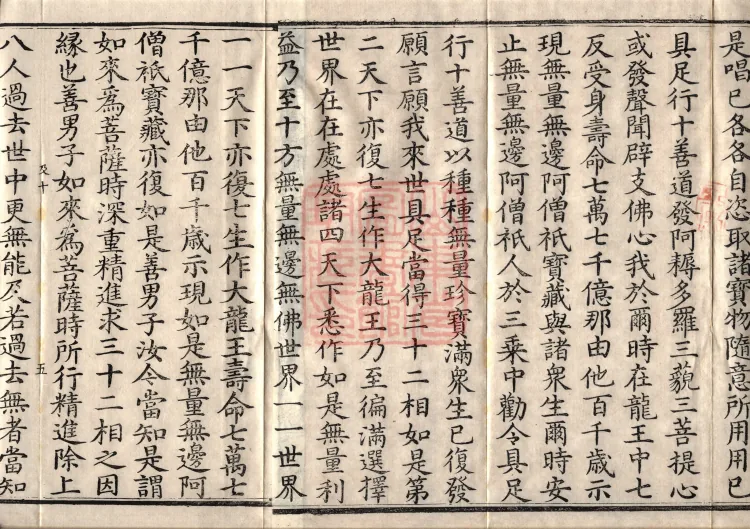 是唱已各各自恣取諸寶物隨意所用用已
具足行十善道發阿耨多羅三藐三菩提心
或發聲聞辟支佛心我於爾時在龍王中七
反受身壽命七萬七千億那由他百千歲示
現無量無邊阿僧祇寶藏與諸衆生爾時安
止無量無邊阿僧祇人於三乗中勸令具足
行十善道以種種無量珍寶滿衆生已復發
願言願我來世具足當得三十二相如是第
二天下亦復七生作大龍王乃至徧滿選擇
世界在在處處諸四天下悉作如是無量利
益乃至十方無量無邊無佛世界一一世界
一一天下亦復七生作大龍王壽命七萬七
千億那由他百千歲示現如是無量無邊阿
僧祇寶藏亦復如是善男子汝今當知是謂
如來爲菩薩時深重精進求三十二相之因
及十
五
緣也善男子如來爲菩薩時所行精進除上
八人過去世中更無能及若過去無者當知